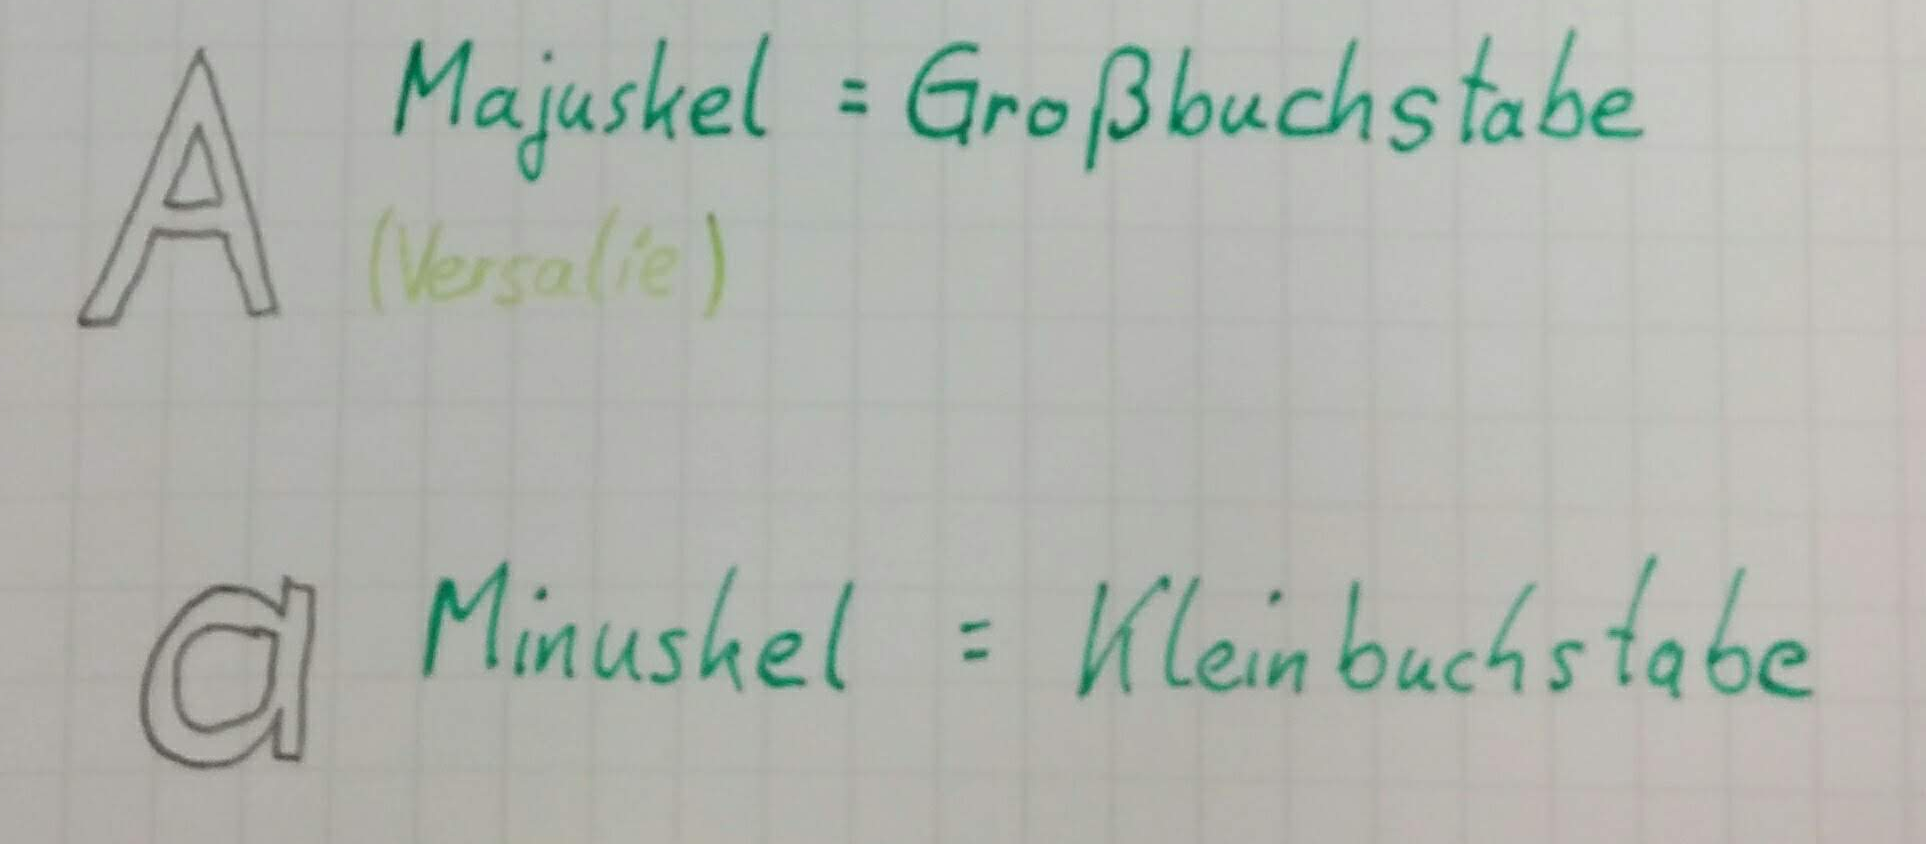 A Majuskel = Großbuchstabe
(Versalie)
a Minuskel = Kleinbuchstabe